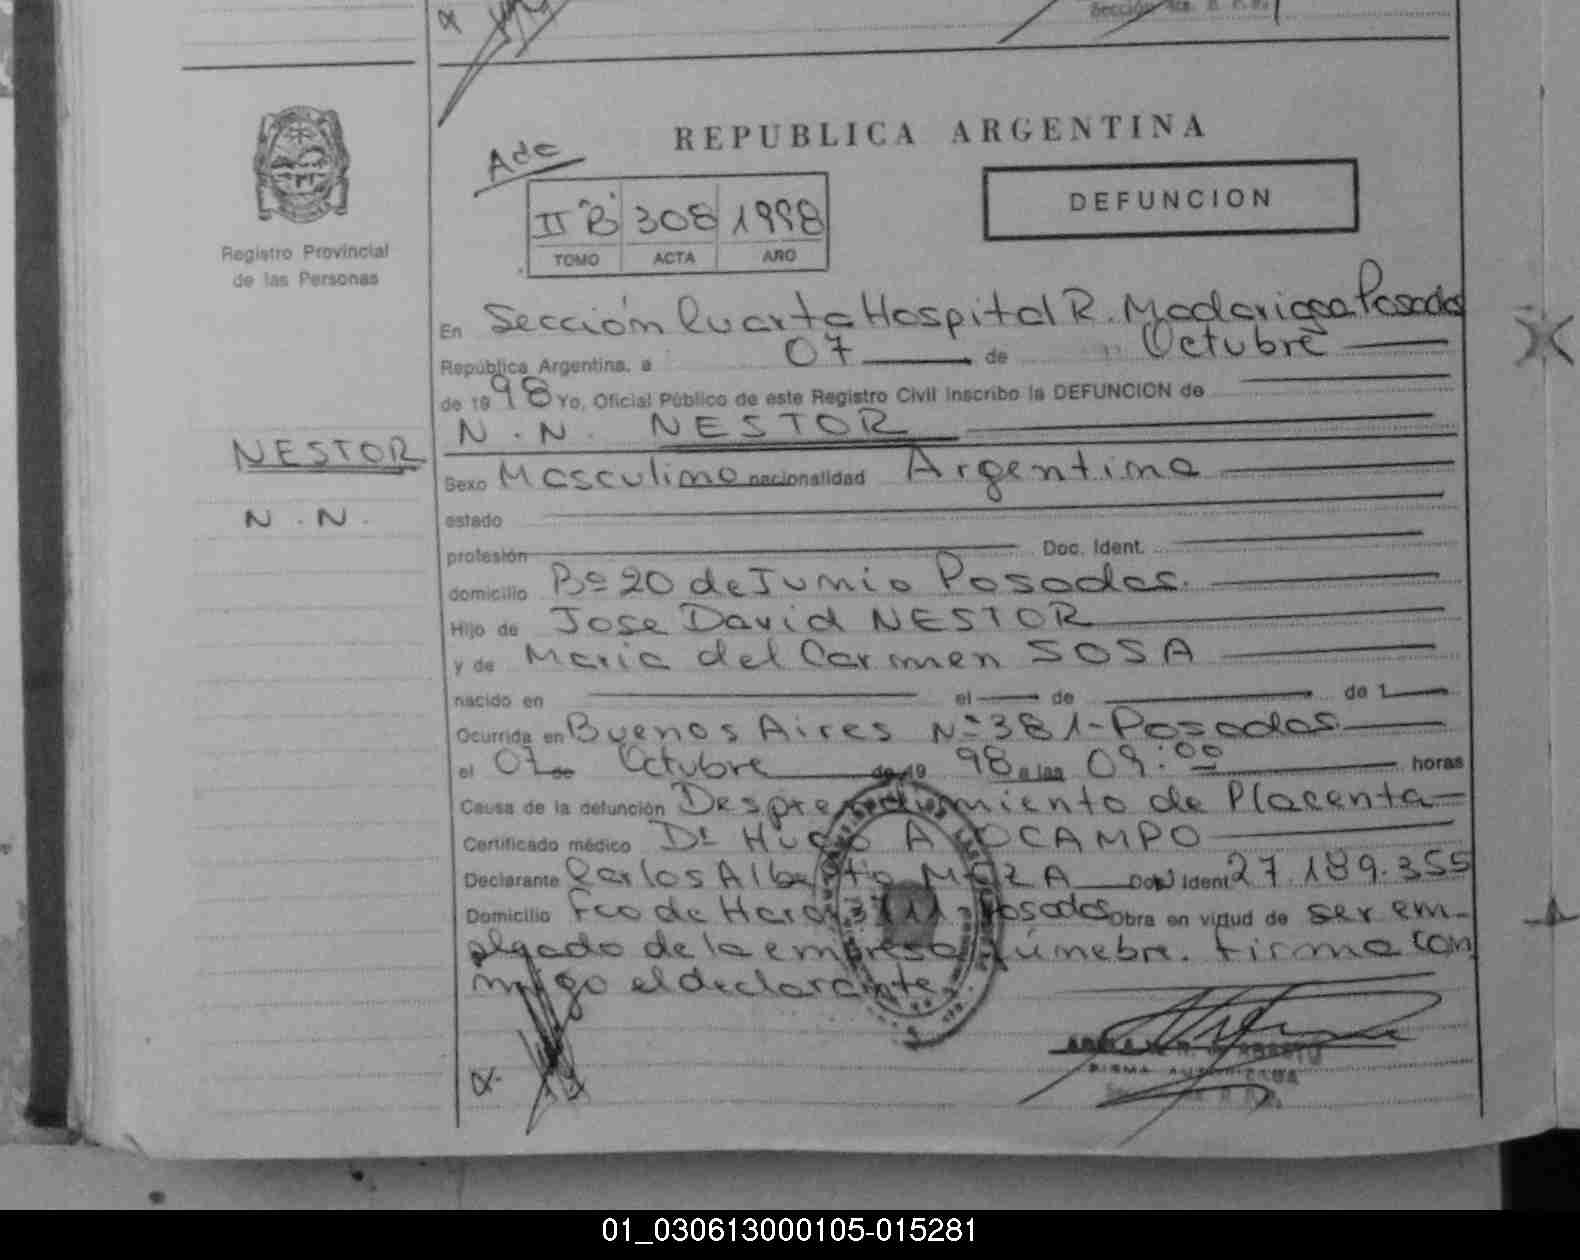 Sección
REPUBLICA ARGENTINA
Adc
II "B" 308 1998
TOMO ACTA AÑO
DEFUNCION
Registro Provincial
de las Personas
En Sección Cuarta Hospital R. Madariaga Posadas
República Argentina, a 07 de Octubre
de 1998 Yo, Oficial Público de este Registro Civil inscribo la DEFUNCION de
N.N. NESTOR
NESTOR
N.N.
Sexo Masculino nacionalidad Argentina
estado
profesión Doc. Ident.
domicilio Bº 20 de Junio Posadas.
Hijo de Jose David NESTOR
y de Maria del Carmen SOSA
nacido en el de de 1
Ocurrida en Buenos Aires Nº 381 - Posadas.
el 07 de Octubre de 19 98 a las 09:00 horas
Causa de la defunción Desprendimiento de Placenta
Certificado médico Dr Hugo A OCAMPO
Declarante Carlos Alberto Doc Ident 27.189.355
Domicilio Fco de Haro Posadas Obra en virtud de ser em-
plgado de la empresa fúnebre. Firma con
migo el declarante
FIRMA AUTORIZADA
01_030613000105-015281